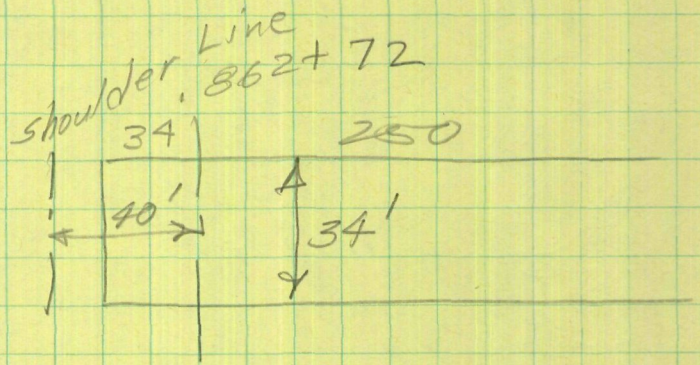 Shoulder Line
862+72
34'
250
40'
34'